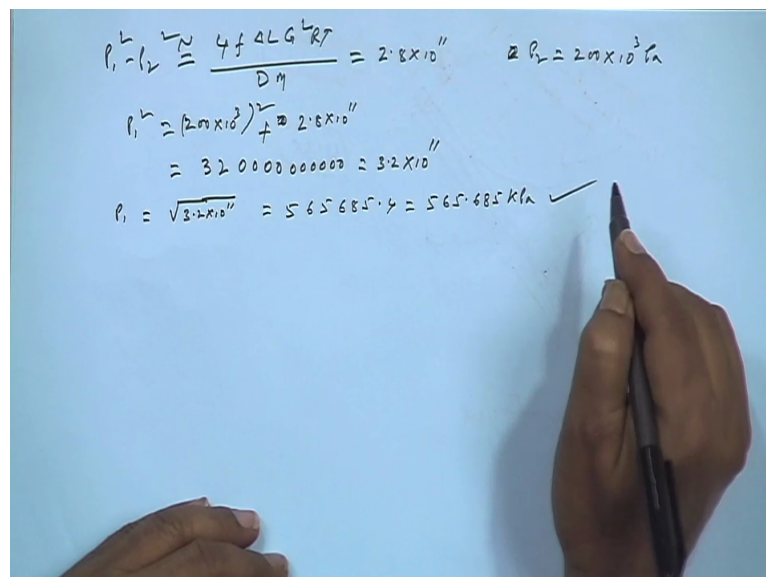 P₁² - P₂² ≅ 4f ΔL G²RT / DM = 2.8×10¹¹ P₂ = 200×10³ Pa
P₁² = (200×10³)² + 2.8×10¹¹
= 320000000000 = 3.2×10¹¹
P₁ = √3.2×10¹¹ = 565685.4 = 565.685 KPa ✓